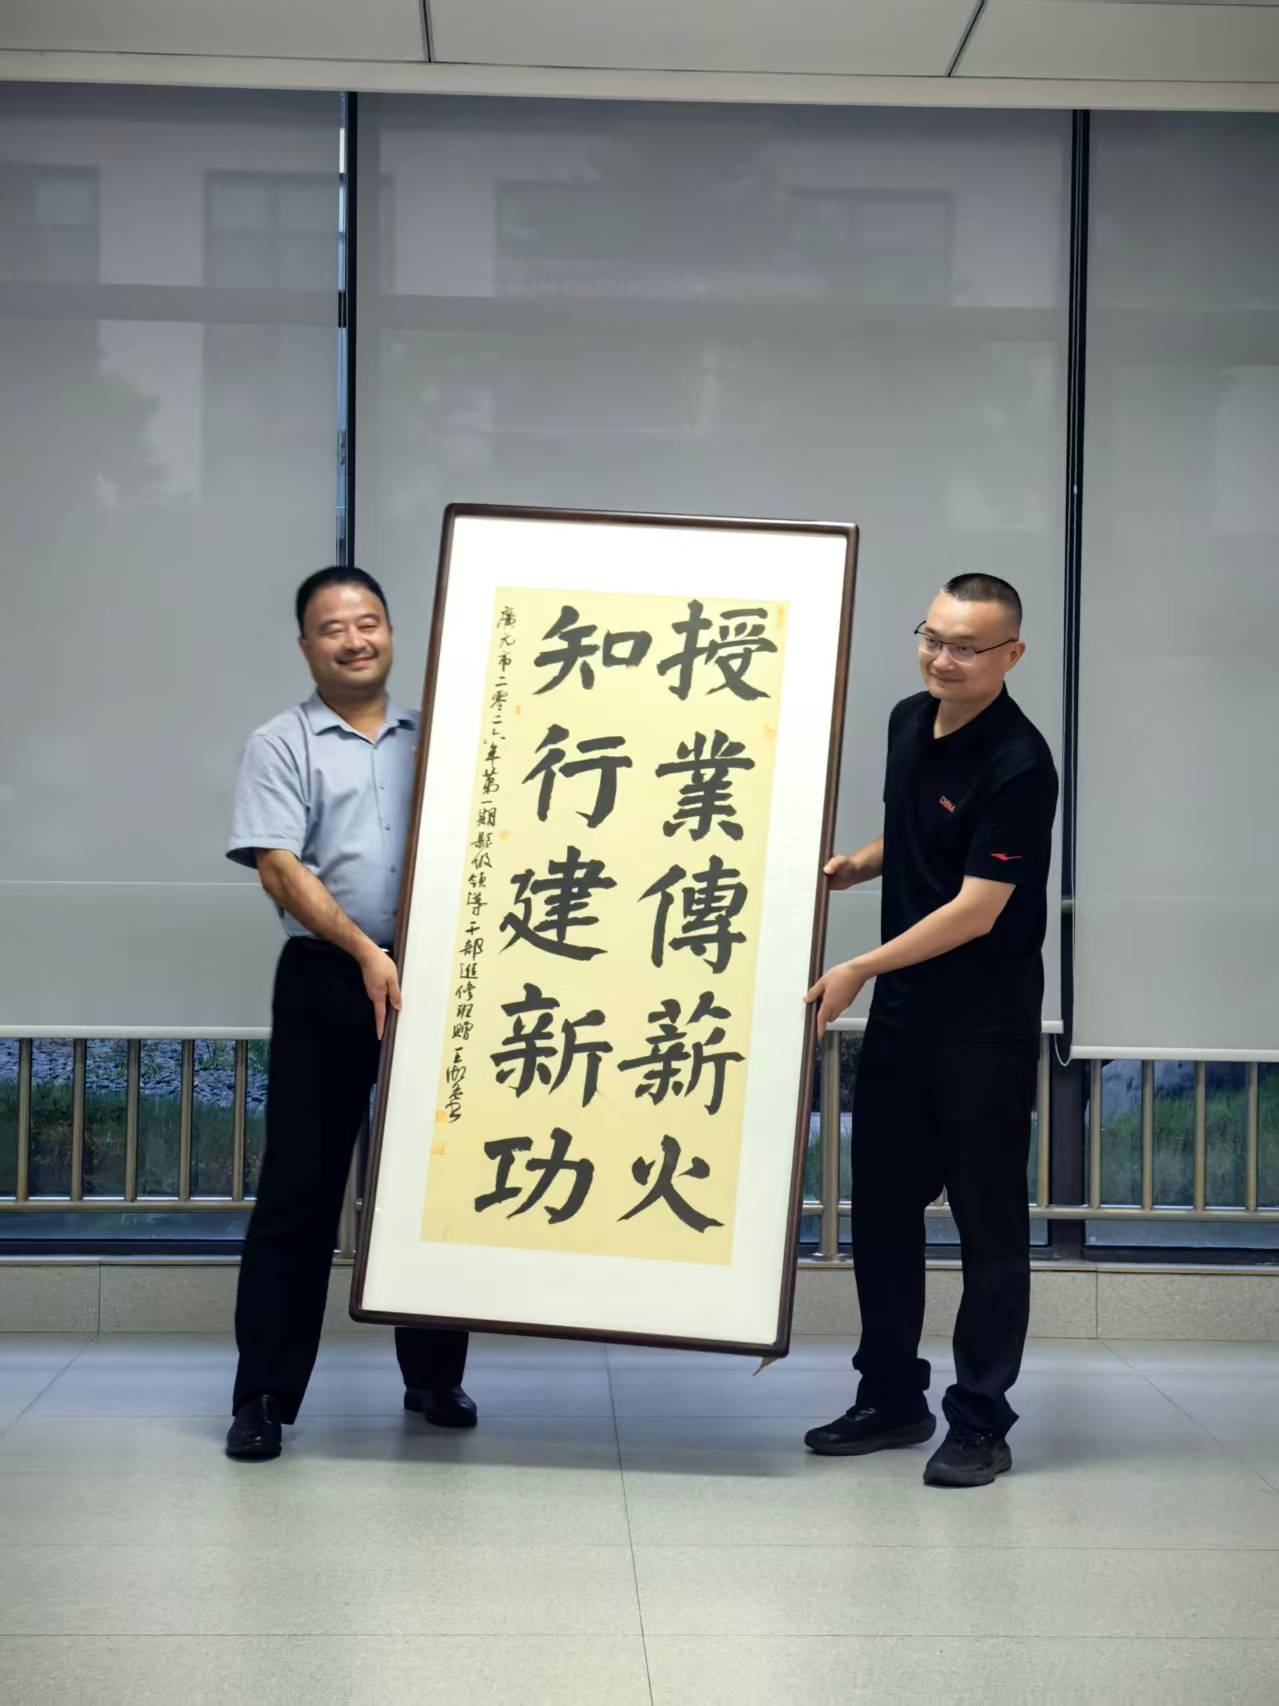 授業傳薪火
知行建新功
廣元市二零二六年第一期縣級領導干部進修班贈
CHINA